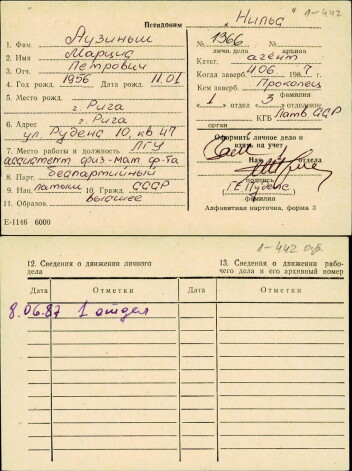 1-442
Псевдоним „Нильс"
1. Фам. Аузиньш
2. Имя Марцис
3. Отч. Петрович
4. Год рожд. 1956 Дата рожд. 11.01
5. Место рожд.
г. Рига
6. Адрес г. Рига
ул. Рудена 10, кв 47
7. Место работы и должность ЛГУ
ассистент физ-мат. ф-та
8. Парт. беспартийный
9. Нац. латыш 10. Гражд. СССР
11. Образов. высшее
Е-1146 6000
№ 1366 №
личн. дела архивн.
Катег. агент
Когда заверб. 4.06. 1987 г.
Кем заверб. Прокопец
фамилия
« 1 » отдел « 3 » отделение
КГБ Латв ССР
орган
Оформить личное дело и
взять на учет
Нач. отдела
подпись
фамилия
Алфавитная карточка, форма 3
1-442 об.
12. Сведения о движении личного
дела
13. Сведения о движении рабо-
чего дела и его архивный номер
Дата Отметки Дата Отметки
8.06.87 1 отдел